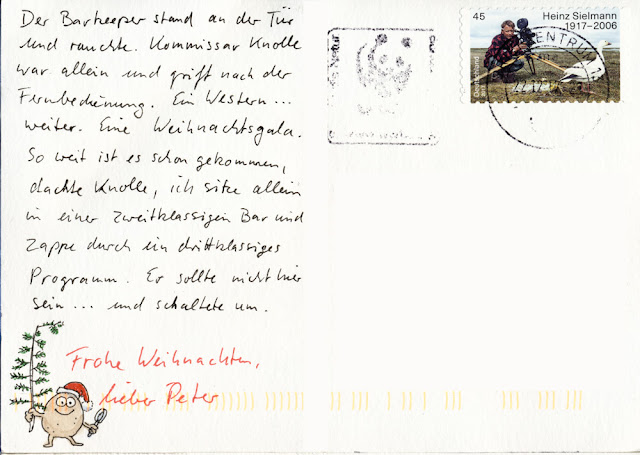 Der Barkeeper stand an der Tür
und rauchte. Kommissar Knolle
war allein und griff nach der
Fernbedienung. Ein Western...
weiter. Eine Weihnachtsgala.
So weit ist es schon gekommen,
dachte Knolle, ich sitze allein
in einer zweitklassigen Bar und
zappe durch ein drittklassiges
Programm. Er sollte nicht hier
sein... und schaltete um.
Frohe Weihnachten,
lieber Peter
45 Heinz Sielmann
1917–2006
Deutschland
ZENTRUM